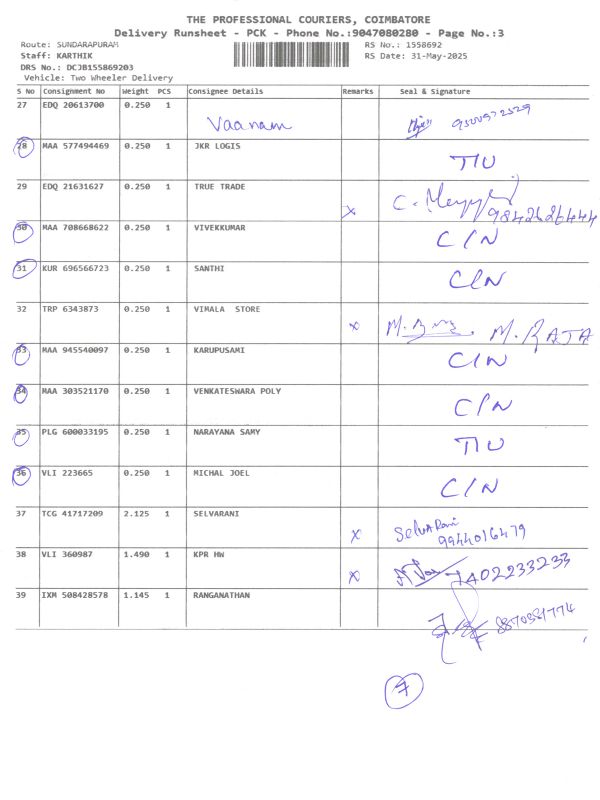 THE PROFESSIONAL COURIERS, COIMBATORE
Delivery Runsheet - PCK - Phone No.:9047080280 - Page No.:3
Route: SUNDARAPURAM RS No.: 1558692
Staff: KARTHIK RS Date: 31-May-2025
DRS No.: DCJB155869203
Vehicle: Two Wheeler Delivery
S No Consignment No Weight PCS Consignee Details Remarks Seal & Signature
27 EDQ 20613700 0.250 1
Vaanam
28 MAA 577494469 0.250 1 JKR LOGIS
T/U
29 EDQ 21631627 0.250 1 TRUE TRADE
x C.
9842626444
30 MAA 708668622 0.250 1 VIVEKKUMAR
C/N
31 KUR 696566723 0.250 1 SANTHI
C/N
32 TRP 6343873 0.250 1 VIMALA STORE
x M. M. RAJA
33 MAA 945540097 0.250 1 KARUPUSAMI
C/N
34 MAA 303521170 0.250 1 VENKATESWARA POLY
C/N
35 PLG 600033195 0.250 1 NARAYANA SAMY
T/U
36 VLI 223665 0.250 1 MICHAL JOEL
C/N
37 TCG 41717209 2.125 1 SELVARANI
x SelvaRani
9944016479
38 VLI 360987 1.490 1 KPR HW
x 7402233233
39 IXM 508428578 1.145 1 RANGANATHAN
8870381774
7